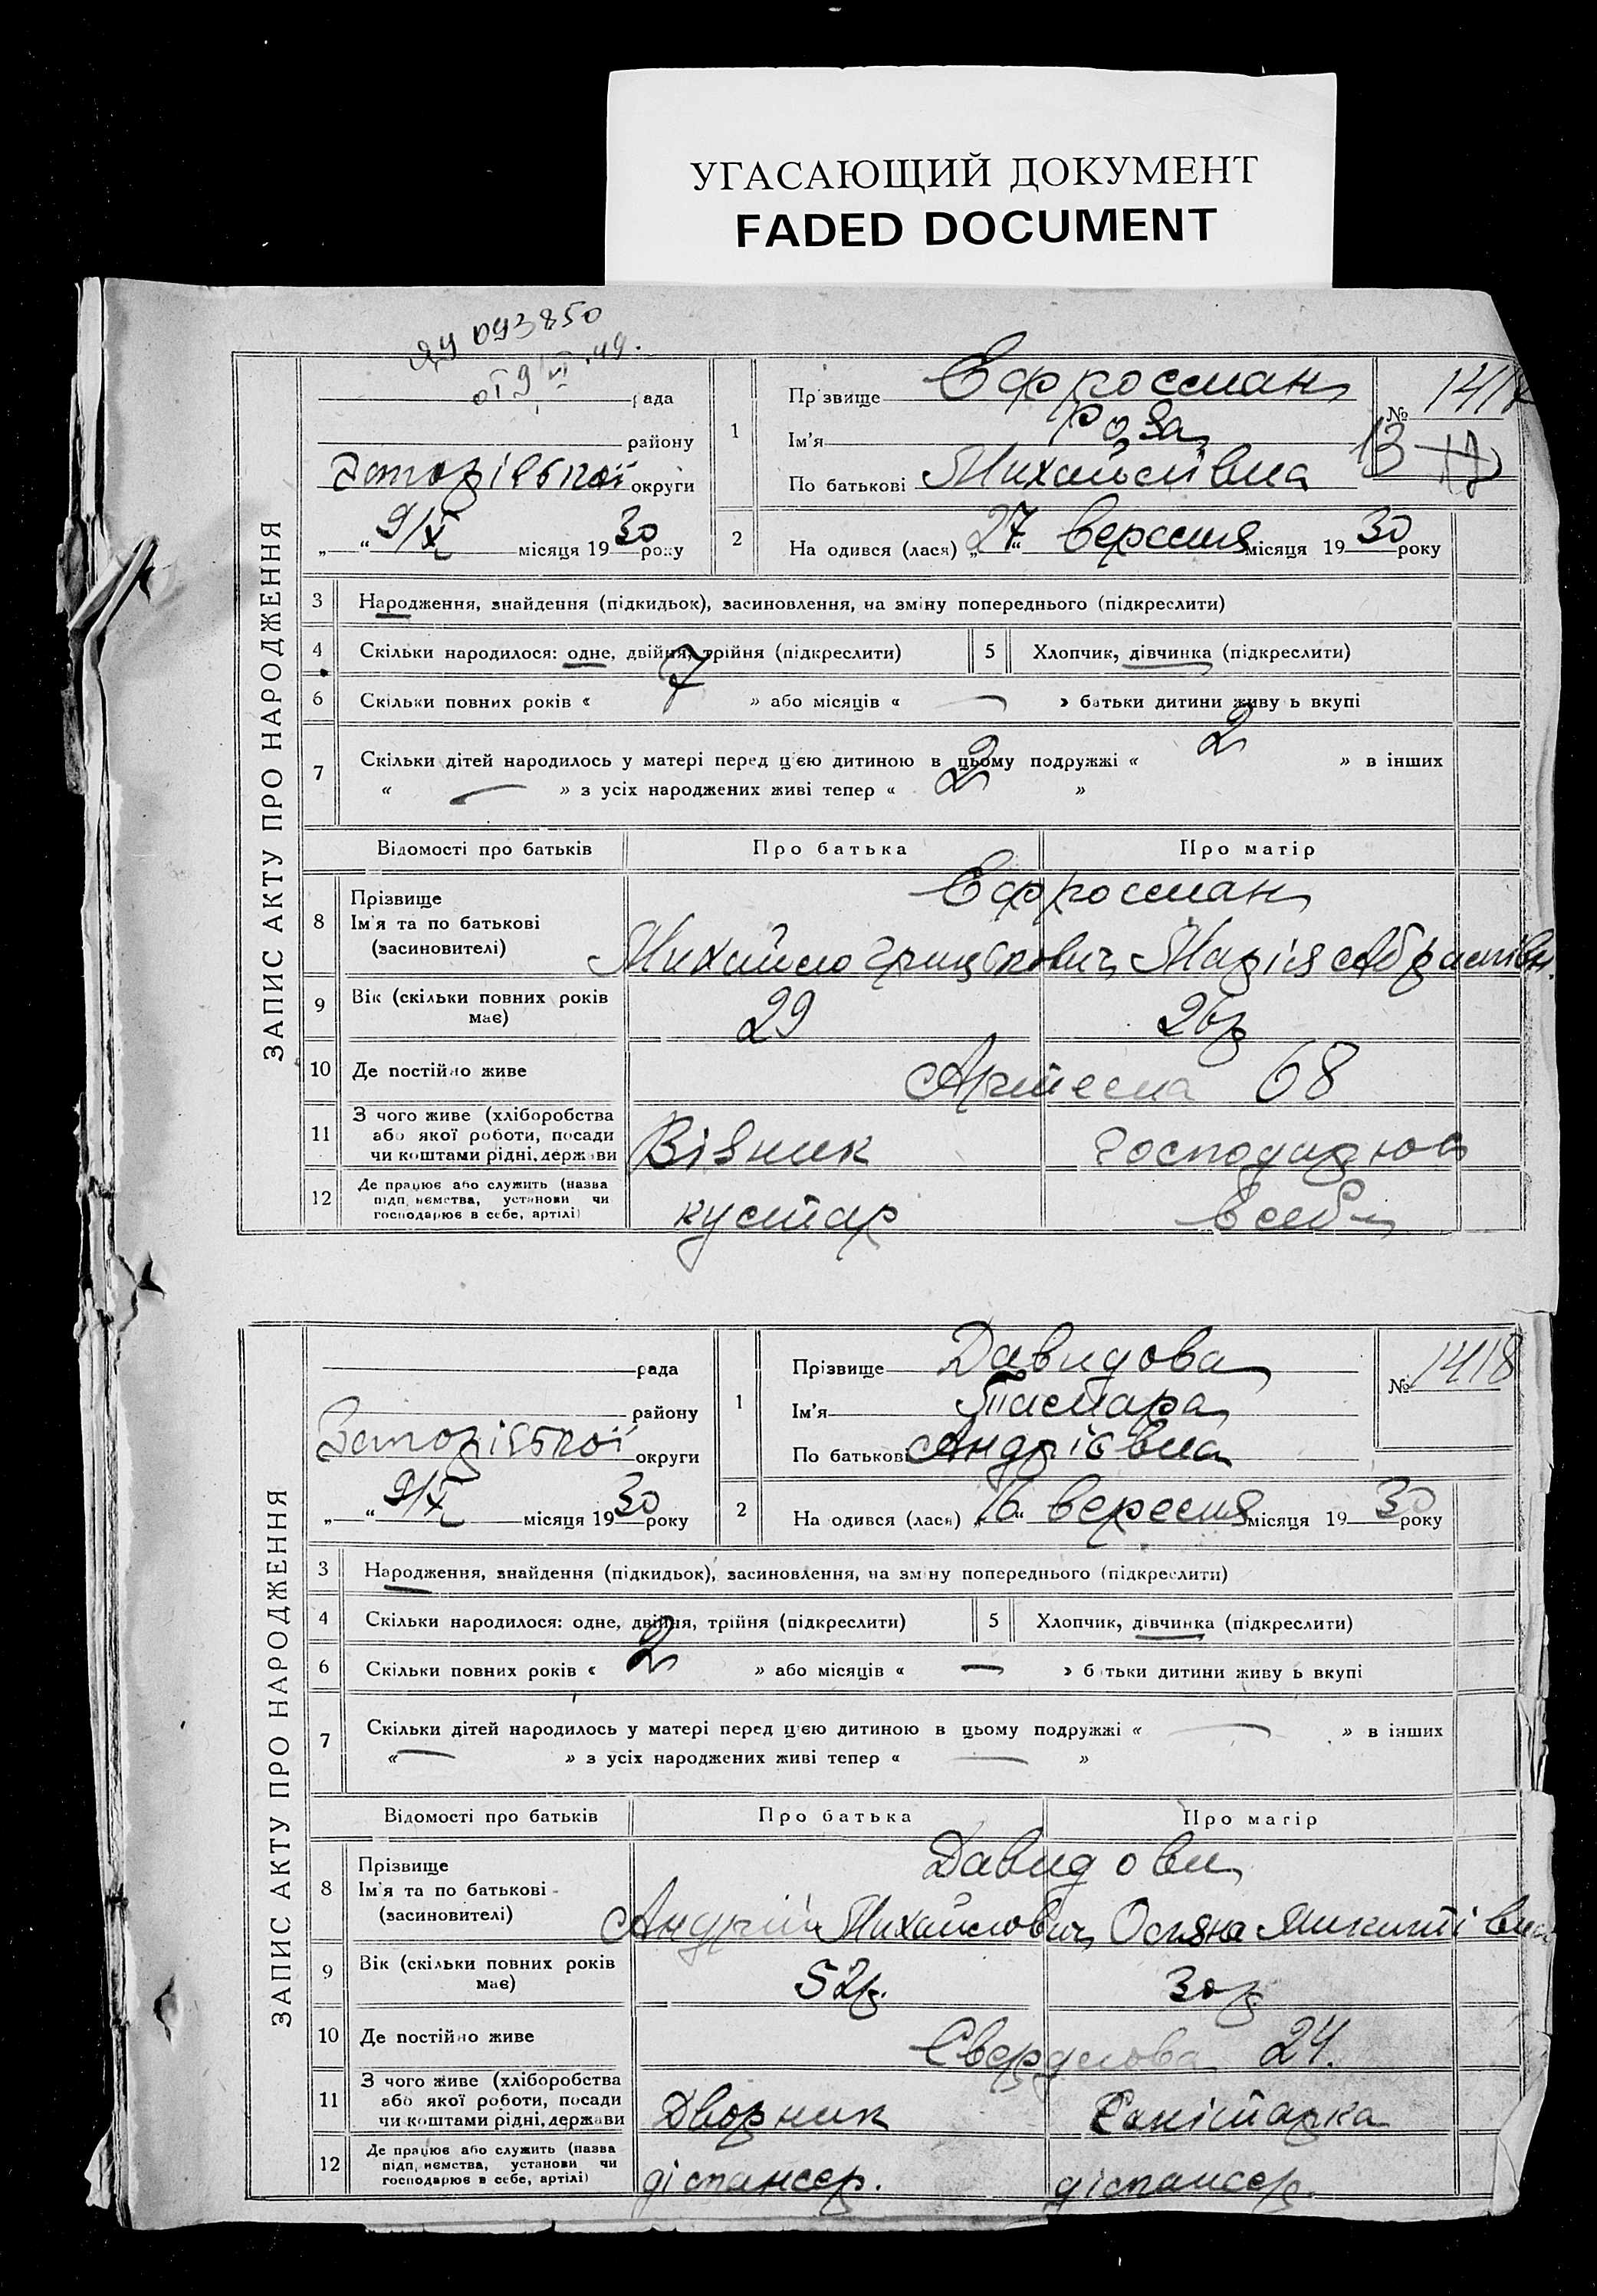 УГАСАЮЩИЙ ДОКУМЕНТ
FADED DOCUMENT
ЯЧ 093850
от 9/VI.49.
ЗАПИС АКТУ ПРО НАРОДЖЕННЯ
рада
району
Запорізької округи
„ “ 9/X місяця 1930 року
1
Прізвище Ефросман
Ім'я Роза
По батькові Михайлівна
№ 1417
2
На одився (лася) „27“ вересня місяця 1930 року
3 Народження, знайдення (підкидьок), засиновлення, на зміну попереднього (підкреслити)
4 Скільки народилося: одне, двійня, трійня (підкреслити) 5 Хлопчик, дівчинка (підкреслити)
6 Скільки повних років « 7 » або місяців « — » батьки дитини живу ь вкупі
7 Скільки дітей народилось у матері перед цією дитиною в цьому подружжі « 2 » в інших
« — » з усіх народжених живі тепер « 2 »
Відомості про батьків Про батька Про матір
8 Прізвище Ефросман
Ім'я та по батькові
(засиновителі) Михайло Грицькович Марія Абрамівн.
9 Вік (скільки повних років має) 29 26 р
10 Де постійно живе Артема 68
11 З чого живе (хліборобства
або якої роботи, посади
чи коштами рідні, держави Візник господарює
12 Де працює або служить (назва
підп иємства, установи чи
господарює в себе, артілі) кустар в себе
ЗАПИС АКТУ ПРО НАРОДЖЕННЯ
рада
району
Запорізької округи
„ “ 9/X місяця 1930 року
1
Прізвище Давидова
Ім'я Тамара
По батькові Андріївна
№ 1418
2
На одився (лася) „16“ вересня місяця 1930 року
3 Народження, знайдення (підкидьок), засиновлення, на зм ну попереднього (підкреслити)
4 Скільки народилося: одне, двійня, трійня (підкреслити) 5 Хлопчик, дівчинка (підкреслити)
6 Скільки повних років « 2 » або місяців « — » б тьки дитини живу ь вкупі
7 Скільки дітей народилось у матері перед цією дитиною в цьому подружжі « — » в інших
« — » з усіх народжених живі тепер « — »
Відомості про батьків Про батька Про матір
8 Прізвище Давидови
Ім'я та по батькові
(засиновителі) Андрій Михайлович Микитівна
9 Вік (скільки повних років має) 52 р. 30 р
10 Де постійно живе Свердлова 24.
11 З чого живе (хліборобства
або якої роботи, посади
чи коштами рідні, держави Дворник Санітарка
12 Де працює або служить (назва
підп иємства, установи чи
господарює в себе, артілі) діспансер. діспансер.